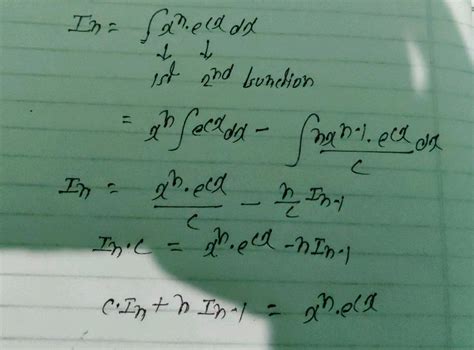 Iₙ = ∫xⁿ·eᶜˣdx
↓ ↓
1st 2nd function
= xⁿ∫eᶜˣdx − ∫nxⁿ⁻¹·eᶜˣ/c dx
Iₙ = xⁿ·eᶜˣ/c − n/c Iₙ₋₁
Iₙ·c = xⁿ·eᶜˣ − nIₙ₋₁
c·Iₙ + n Iₙ₋₁ = xⁿ·eᶜˣ